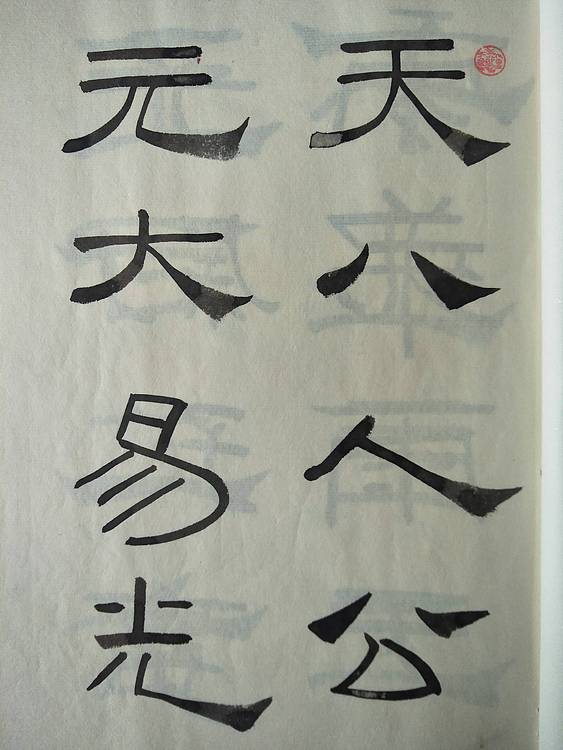 天八人公
元大易光